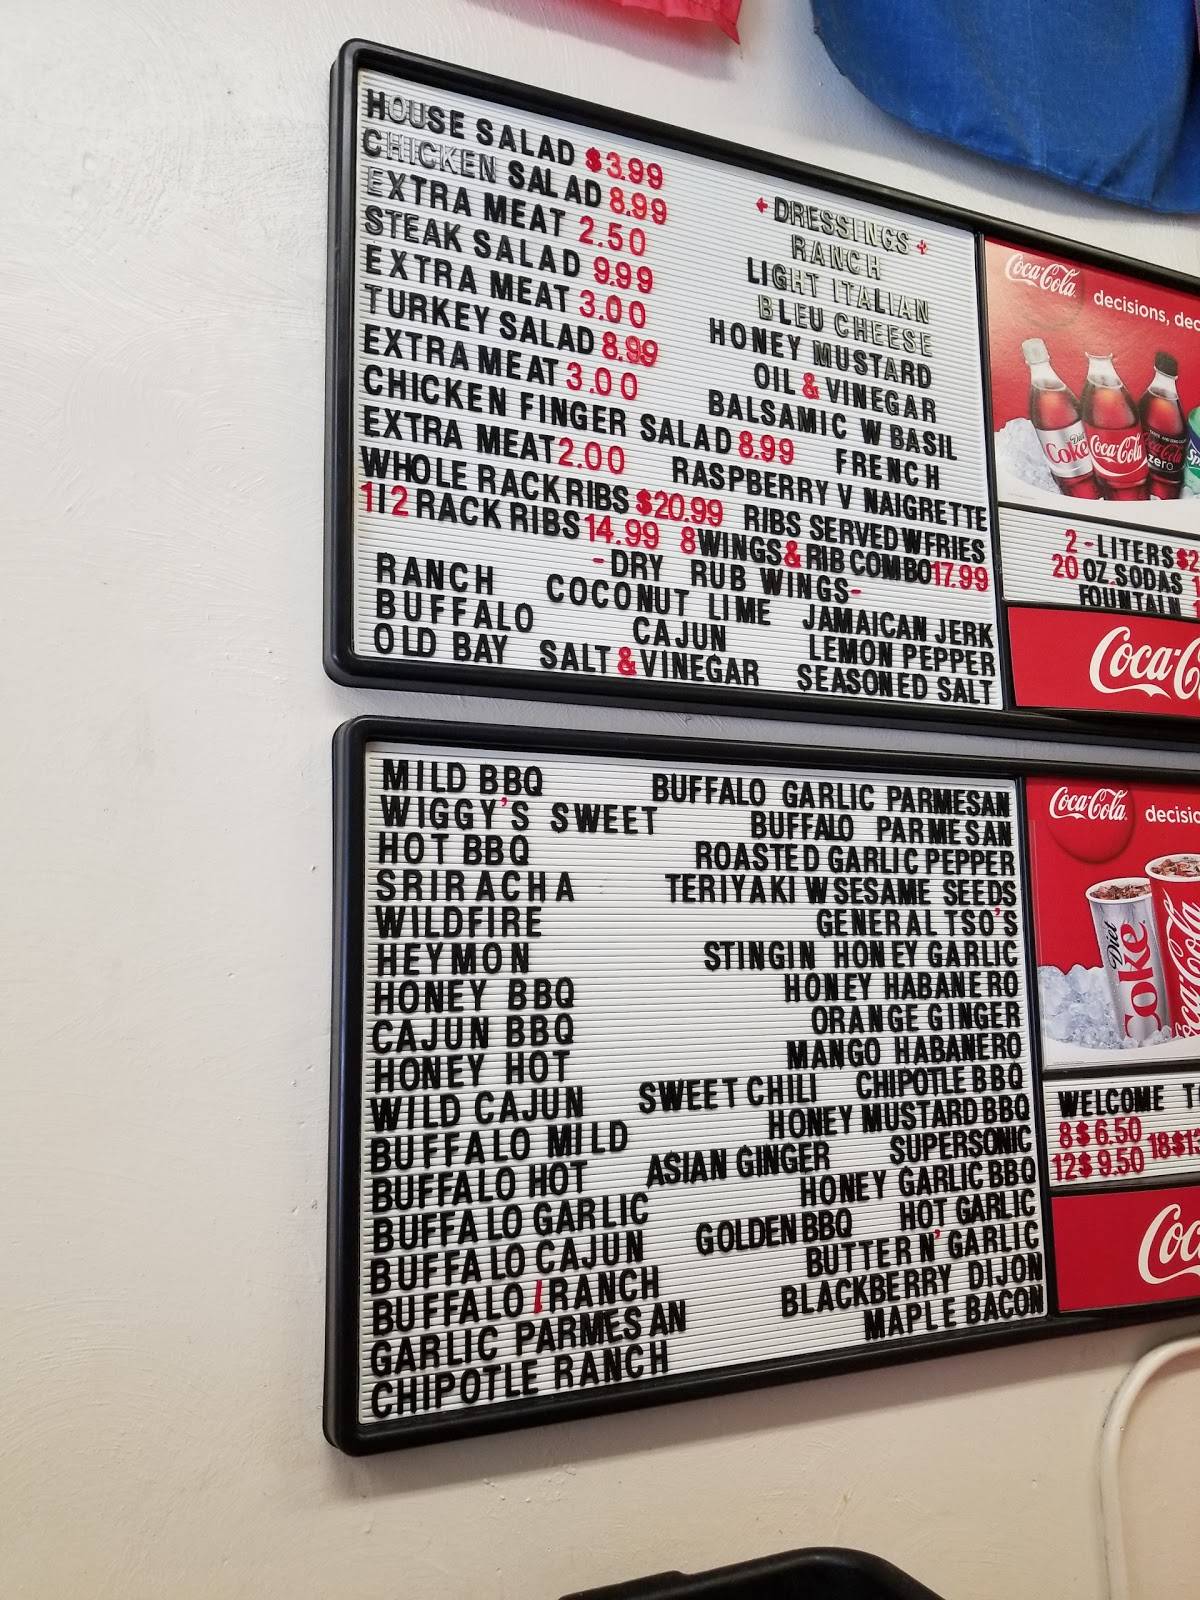 HOUSE SALAD $3.99
CHICKEN SALAD 8.99
EXTRA MEAT 2.50
STEAK SALAD 9.99
EXTRA MEAT 3.00
TURKEY SALAD 8.99
EXTRA MEAT 3.00
CHICKEN FINGER SALAD 8.99
EXTRA MEAT 2.00
WHOLE RACK RIBS $20.99
1|2 RACK RIBS 14.99
DRESSINGS
RANCH
LIGHT ITALIAN
BLEU CHEESE
HONEY MUSTARD
OIL & VINEGAR
BALSAMIC W BASIL
FRENCH
RASPBERRY V NAIGRETTE
RIBS SERVED W FRIES
8 WINGS & RIB COMBO 17.99
-DRY RUB WINGS-
RANCH COCONUT LIME JAMAICAN JERK
BUFFALO CAJUN LEMON PEPPER
OLD BAY SALT & VINEGAR SEASONED SALT
Coca-Cola decisions, dec
Diet Coke Coca-Cola Coca-Cola zero Sp
2-LITERS $2
20 OZ. SODAS 1
FOUNTAIN 1
Coca-C
MILD BBQ
WIGGY'S SWEET
HOT BBQ
SRIRACHA
WILDFIRE
HEYMON
HONEY BBQ
CAJUN BBQ
HONEY HOT
WILD CAJUN
BUFFALO MILD
BUFFALO HOT
BUFFALO GARLIC
BUFFALO CAJUN
BUFFALO / RANCH
GARLIC PARMESAN
CHIPOTLE RANCH
BUFFALO GARLIC PARMESAN
BUFFALO PARMESAN
ROASTED GARLIC PEPPER
TERIYAKI W SESAME SEEDS
GENERAL TSO'S
STINGIN HONEY GARLIC
HONEY HABANERO
ORANGE GINGER
MANGO HABANERO
SWEET CHILI CHIPOTLE BBQ
HONEY MUSTARD BBQ
ASIAN GINGER SUPERSONIC
HONEY GARLIC BBQ
GOLDEN BBQ HOT GARLIC
BUTTER N' GARLIC
BLACKBERRY DIJON
MAPLE BACON
Coca-Cola decisio
Diet Coke Coca-Cola
WELCOME T
8 $ 6.50 18 $ 13
12 $ 9.50
Coc